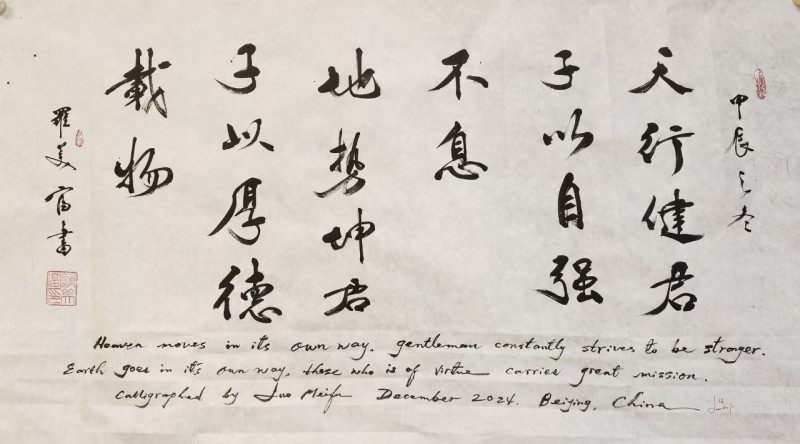 甲辰之冬
天行健君
子以自强
不息
地势坤君
子以厚德
载物
羅美富書
Heaven moves in its own way. gentleman constantly strives to be stronger.
Earth goes in it's own way, those who is of virtue carries great mission.
Calligraphed by Luo Meifu December 2024. Beijing, China